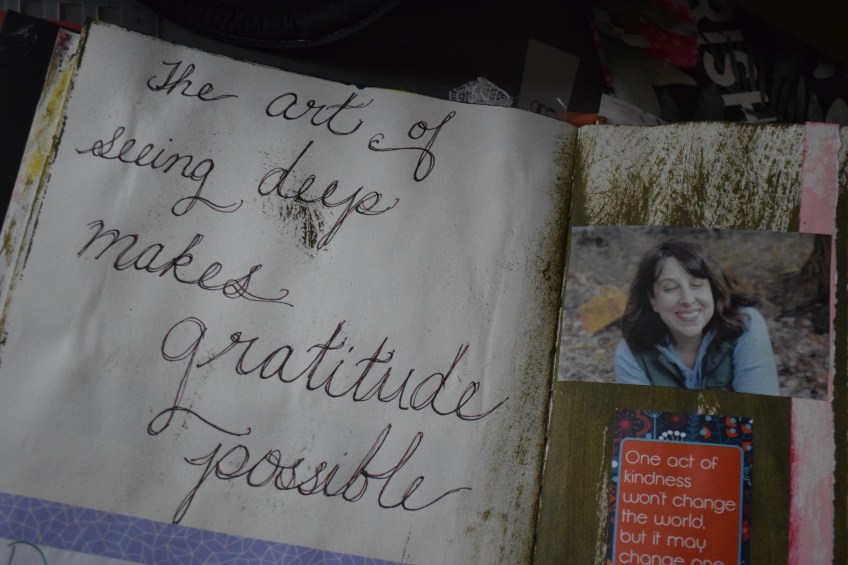 The art of
seeing deep
makes
gratitude
possible
One act of
kindness
won't change
the world,
but it may
change one